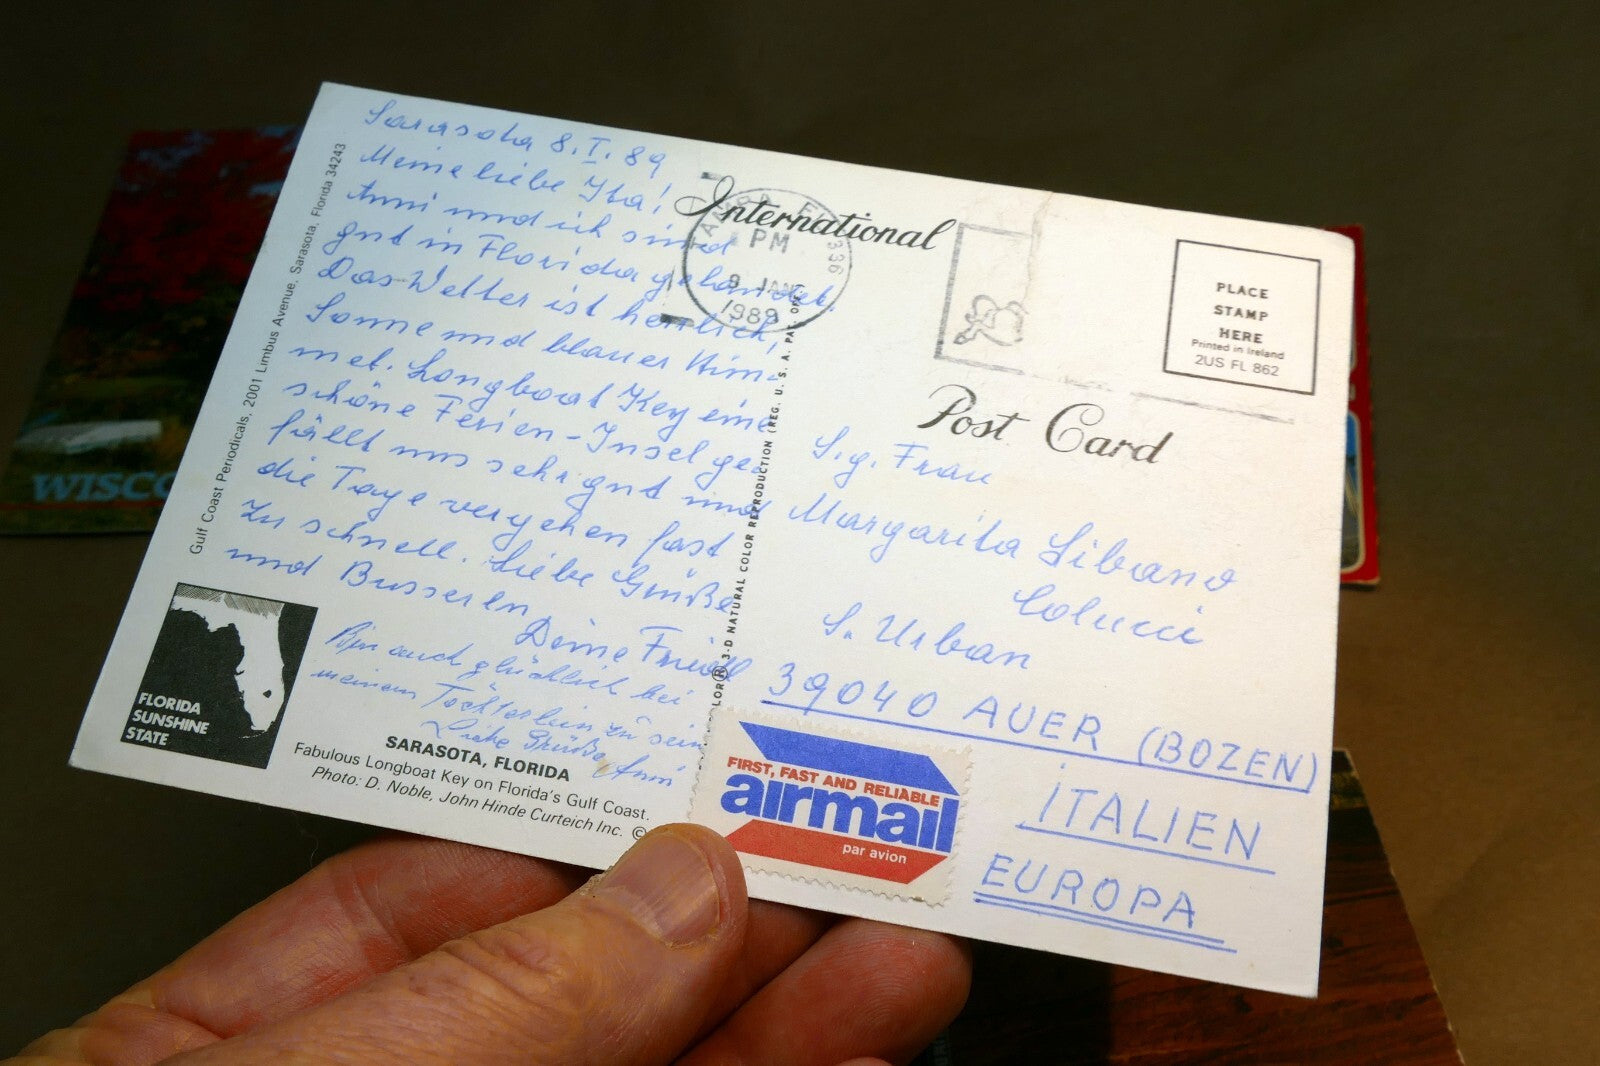 Sarasota 8. I. 89
Meine liebe Ita!
Anni und ich sind
gut in Florida gelandet.
Das Wetter ist herrlich,
Sonne und blauer Him-
mel. Longboat Key eine
schöne Ferien-Insel ge-
fällt uns sehr gut und
die Tage vergehen fast
zu schnell. Liebe Grüße
und Busserln
Deine Friedl
Bin auch glücklich bei
meinem Töchterlein zu sein
Liebe Grüße Anni
Gulf Coast Periodicals, 2001 Limbus Avenue, Sarasota, Florida 34243
FLORIDA
SUNSHINE
STATE
SARASOTA, FLORIDA
Fabulous Longboat Key on Florida's Gulf Coast.
Photo: D. Noble, John Hinde Curteich Inc. ©
3-D NATURAL COLOR REPRODUCTION (REG. U. S. A. PAT. OFF.
International
PM
8 JAN
1989
336
PLACE
STAMP
HERE
Printed in Ireland
2US FL 862
Post Card
S.g. Frau
Margarita Libano
Colucci
S. Urban
39040 AUER (BOZEN)
ITALIEN
EUROPA
FIRST, FAST AND RELIABLE
airmail
par avion
WISCO